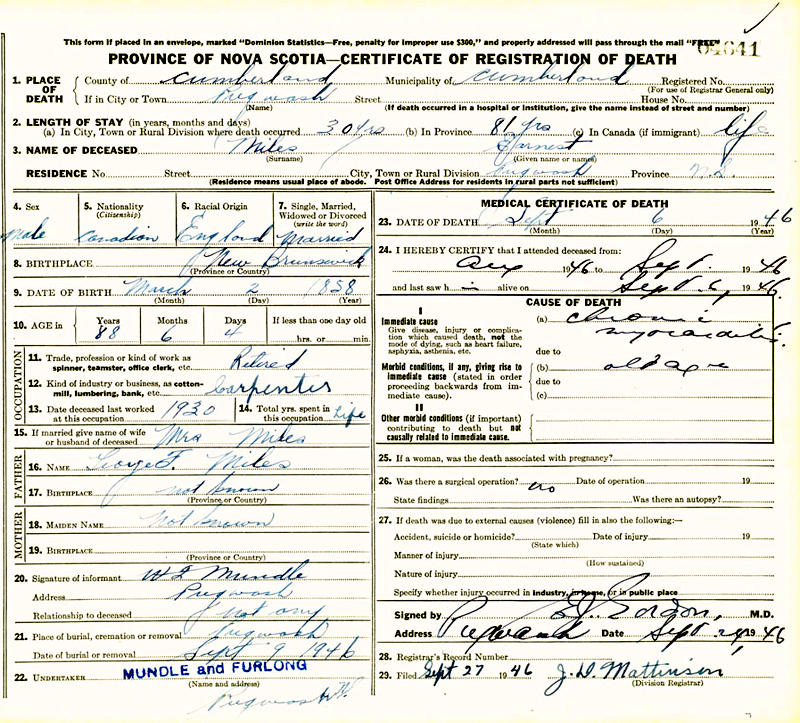 This form if placed in an envelope, marked "Dominion Statistics—Free, penalty for improper use $300," and properly addressed will pass through the mail "FREE"
PROVINCE OF NOVA SCOTIA—CERTIFICATE OF REGISTRATION OF DEATH
1. PLACE OF DEATH County of Cumberland Municipality of Cumberland Registered No.
(For use of Registrar General only)
If in City or Town Pugwash Street House No.
(Name) (If death occurred in a hospital or institution, give the name instead of street and number)
2. LENGTH OF STAY (in years, months and days)
(a) In City, Town or Rural Division where death occurred 30 yrs (b) In Province 81 yrs (c) In Canada (if immigrant) life
3. NAME OF DECEASED Miles Earnest
(Surname) (Given name or names)
RESIDENCE No. Street City, Town or Rural Division Pugwash Province N.S.
(Residence means usual place of abode. Post Office Address for residents in rural parts not sufficient)
4. Sex 5. Nationality (Citizenship) 6. Racial Origin 7. Single, Married, Widowed or Divorced (write the word)
Male Canadian England Married
8. BIRTHPLACE New Brunswick
(Province or Country)
9. DATE OF BIRTH March 2 1858
(Month) (Day) (Year)
10. AGE in Years Months Days If less than one day old
88 6 4 hrs. or min.
OCCUPATION
11. Trade, profession or kind of work as spinner, teamster, office clerk, etc. Retired
12. Kind of industry or business, as cotton-mill, lumbering, bank, etc. Carpenter
13. Date deceased last worked at this occupation 1930 14. Total yrs. spent in this occupation Life
15. If married give name of wife or husband of deceased Mrs Miles
FATHER
16. NAME George F. Miles
17. BIRTHPLACE not known
(Province or Country)
MOTHER
18. MAIDEN NAME Not known
19. BIRTHPLACE
(Province or Country)
20. Signature of informant Mundle
Address Pugwash
Relationship to deceased not any
21. Place of burial, cremation or removal Pugwash
Date of burial or removal Sept 9 1946
22. UNDERTAKER MUNDLE and FURLONG
(Name and address)
Pugwash
MEDICAL CERTIFICATE OF DEATH
23. DATE OF DEATH Sept 6 1946
(Month) (Day) (Year)
24. I HEREBY CERTIFY that I attended deceased from:
Aug 1946 to Sept. 1946
and last saw h im alive on Sept. 6, 1946.
CAUSE OF DEATH
I
Immediate cause
Give disease, injury or complication which caused death, not the mode of dying, such as heart failure, asphyxia, asthenia, etc.
(a) chronic
myocarditis.
due to
Morbid conditions, if any, giving rise to immediate cause (stated in order proceeding backwards from immediate cause).
(b) old age
due to
(c)
II
Other morbid conditions (if important) contributing to death but not causally related to immediate cause.
25. If a woman, was the death associated with pregnancy?
26. Was there a surgical operation? no Date of operation 19
State findings Was there an autopsy?
27. If death was due to external causes (violence) fill in also the following:—
Accident, suicide or homicide? Date of injury 19
(State which)
Manner of injury
(How sustained)
Nature of injury
Specify whether injury occurred in industry, in home, or in public place
Signed by Gordon, M.D.
Address Pugwash Date Sept 1946
28. Registrar's Record Number
29. Filed Sept 27 1946 J. D. Mattinson
(Division Registrar)